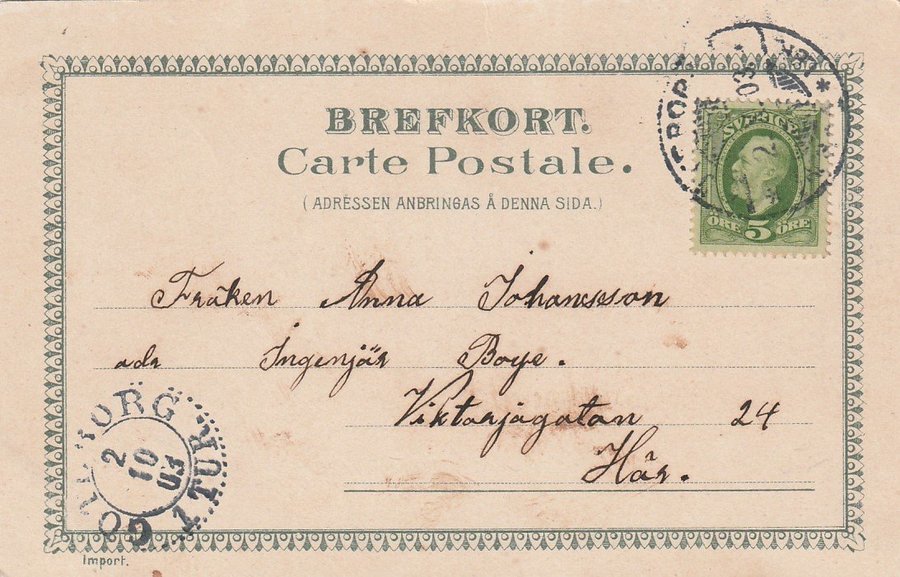 BREFKORT.
Carte Postale.
(ADRESSEN ANBRINGAS Å DENNA SIDA.)
SVERIGE
ÖRE 5 ÖRE
Fröken Anna Johansson
adr Ingenjör Boye.
Viktoriagatan 24
Här.
GÖTEBORG
2
10
03
1 TUR
Import.